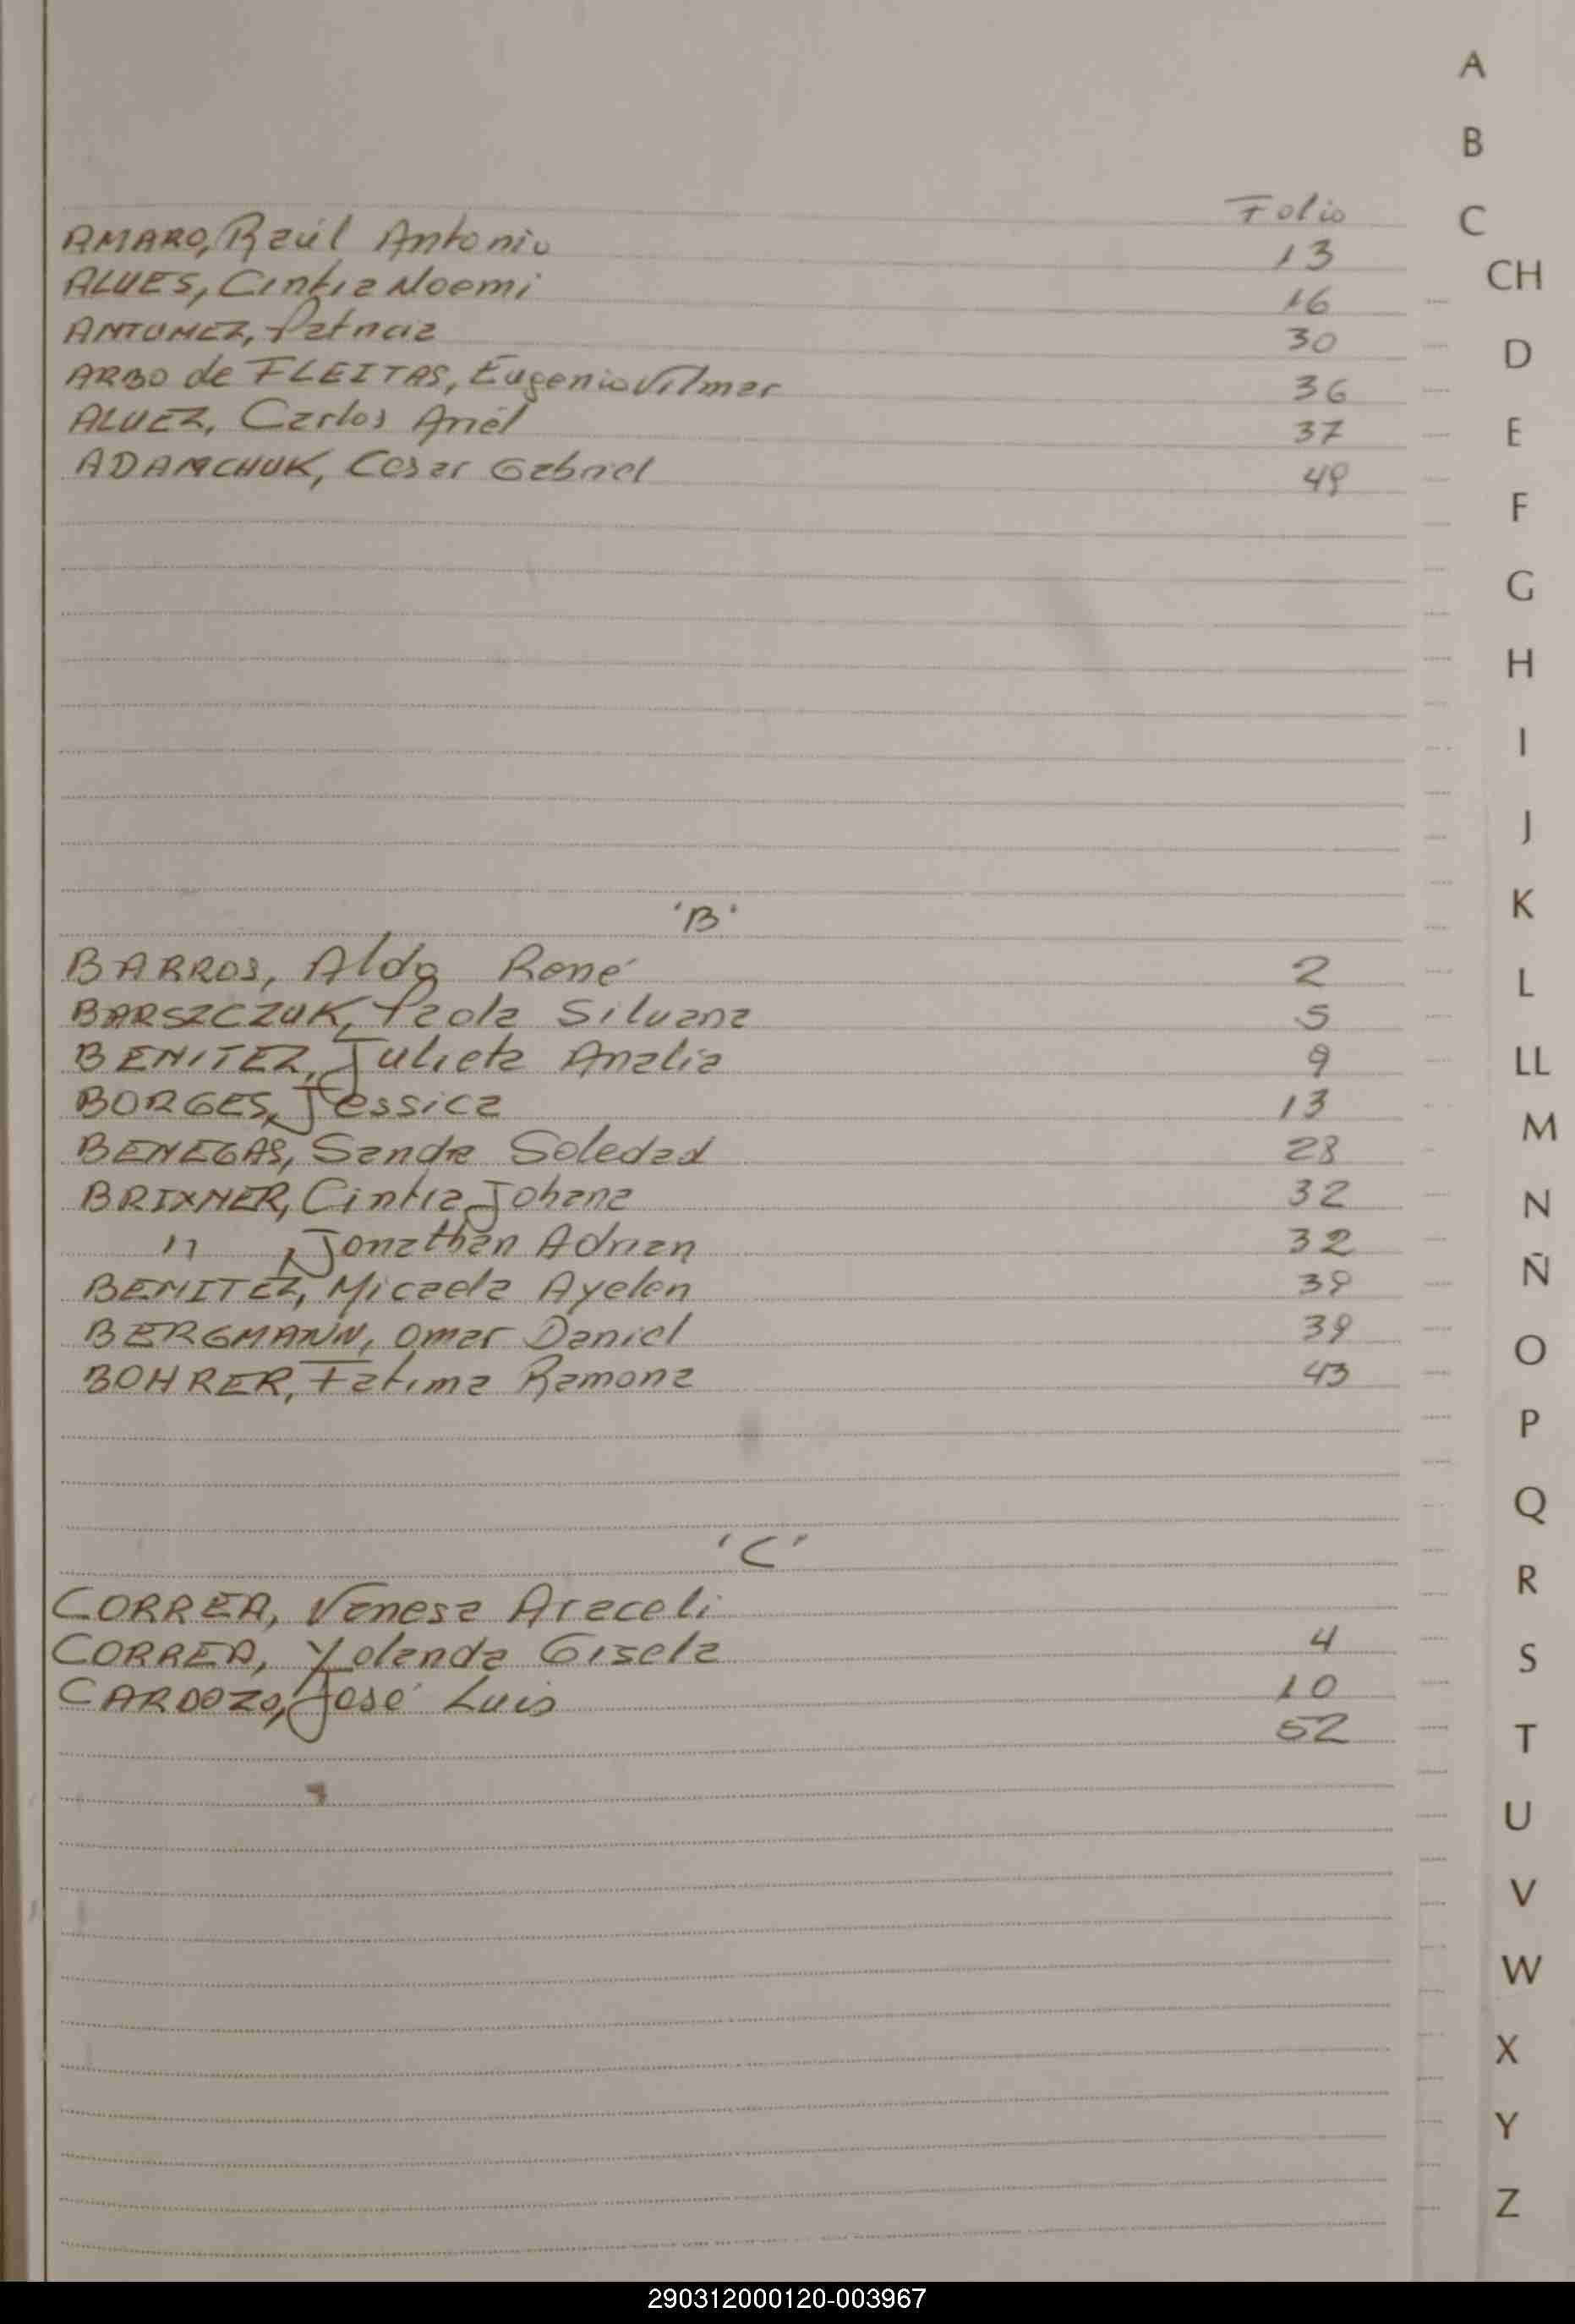 Folio
AMARO, Raúl Antonio 13
ALVES, Cintia Noemi 16
ANTUNEZ, Patricia 30
ARBO de FLEITAS, Eugenio Vilmar 36
ALVEZ, Carlos Ariel 37
ADAMCHUK, Cesar Gabriel 49
'B'
BARROS, Aldo René 2
BARSZCZUK, Paola Silvana 5
BENITEZ, Julieta Analia 9
BORGES, Jessica 13
BENEGAS, Sandra Soledad 28
BRIXNER, Cintia Johana 32
" , Jonathan Adrian 32
BENITEZ, Micaela Ayelen 39
BERGMANN, Omar Daniel 39
BOHRER, Fatima Ramona 43
'C'
CORREA, Vanesa Araceli
CORREA, Yolanda Gisela 4
CARDOZO, José Luis 10
52
A
B
C
CH
D
E
F
G
H
I
J
K
L
LL
M
N
Ñ
O
P
Q
R
S
T
U
V
W
X
Y
Z
290312000120-003967